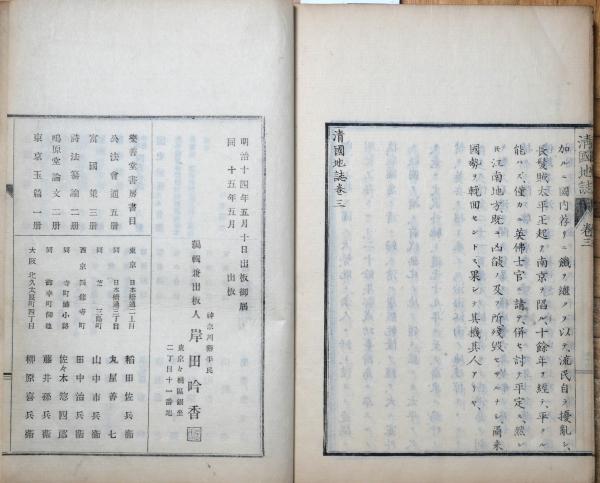 清國地誌 卷三
加ルニ國內荐リニ饑ヲ繼クヲ以テ流民自ラ擾亂シ
長髮賊太平王起テ南京ヲ陷ル十餘年ヲ經テ平クル
能ハズ僅カニ英佛士官ニ請ヒ併セ討テ平定ス然レ
ド江南地方既ニ凶燄ノ及フ所殘毀セザルナシ爾來
國勢ヲ輓回セントス果シテ其機其人アリヤ
清國地誌卷三
明治十四年五月十日出板御屆
同 十五年五月 出板
編輯兼出板人
神奈川縣平民
岸田吟香
東京々橋區銀座
二丁目十一番地
樂善堂書房書目
公法會通五册
富國策三册
詩法纂論二册
鳴原堂論文二册
東京玉篇一册
東京 日本橋通二丁目 稻田佐兵衞
同 日本橋通三丁目 丸屋善七
同 芝三島町 山中市兵衞
西京 田中治兵衞
同 佐々木惣四郎
同 御幸町御池 藤井孫兵衞
大阪 北久太郎町四丁目 柳原喜兵衞